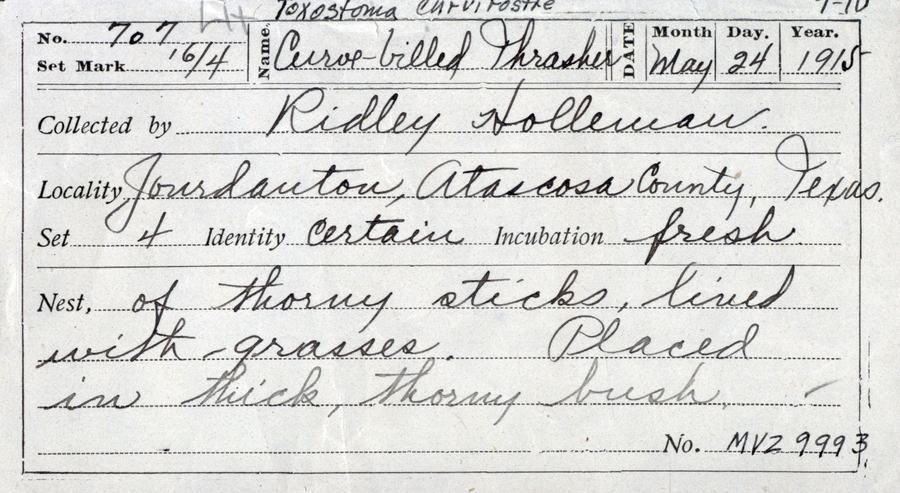 Toxostoma curvirostre
No. 707 Name Curve-billed Thrasher DATE Month Day. Year.
Set Mark 16/4 May 24 1915
Collected by Ridley Holleman.
Locality Jourdanton, Atascosa County, Texas.
Set 4 Identity certain Incubation fresh.
Nest, of thorny sticks, lined
with grasses. Placed
in thick, thorny bush.
No. MVZ 9993